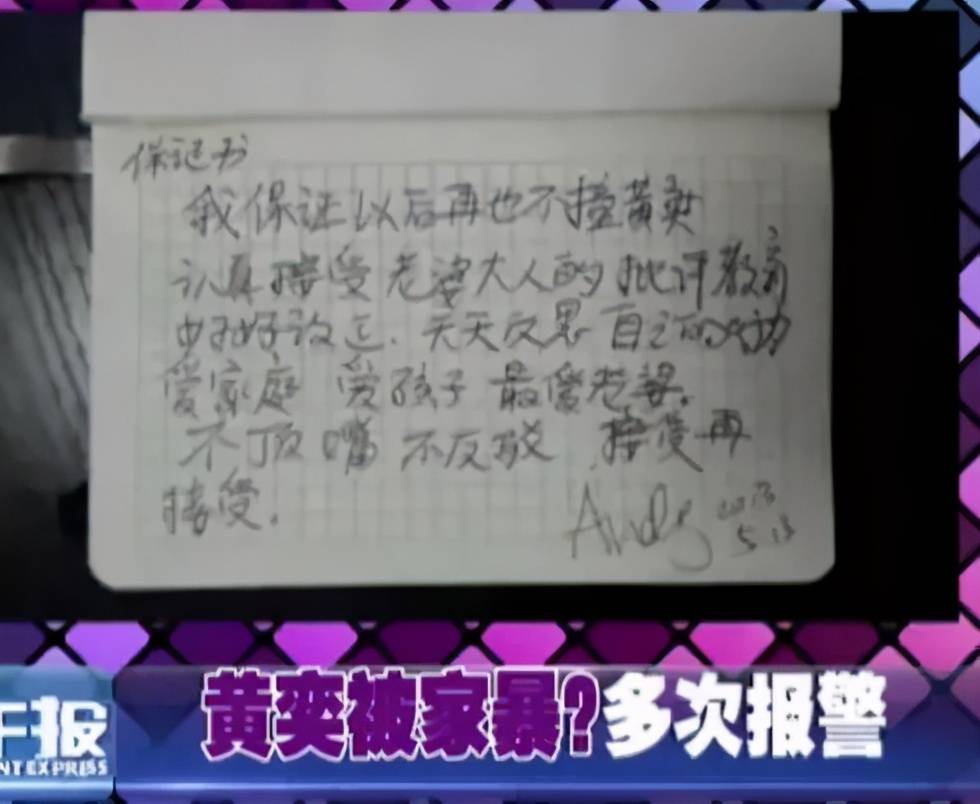 保证书
我保证以后再也不撞黄奕
认真接受老婆大人的批评教育
好好改正.天天反思自己的
爱家庭 爱孩子 最爱老婆.
不顶嘴 不反驳 接受再
接受.
Andy 2013
5 13
黄奕被家暴?多次报警
报
NT EXPRESS